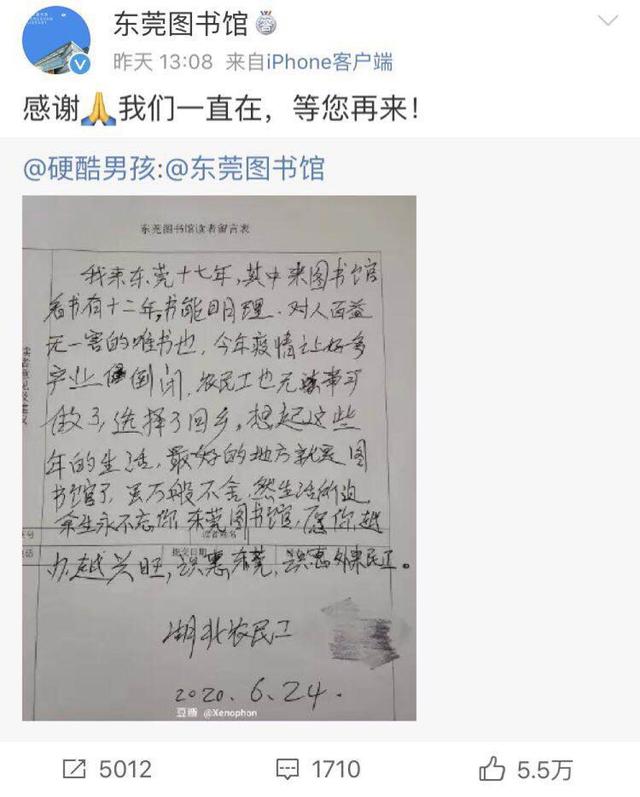 东莞图书馆
昨天 13:08 来自iPhone客户端
感谢🙏我们一直在，等您再来！
@硬酷男孩:@东莞图书馆
东莞图书馆读者留言表
我来东莞十七年，其中来图书馆
看书有十二年，书能明理，对人百益
无一害的唯书也，今年疫情让好多
产业倒闭，农民工也无事可
做了，选择了回乡。想起这些
年的生活，最好的地方就是图
书馆了，虽万般不舍，然生活所迫
余生永不忘你，东莞图书馆，愿你越
办越兴旺，识惠东莞，识惠外来民工。
提交日期
湖北农民工
2020.6.24.
豆瓣 @Xenophon
5012
1710
5.5万